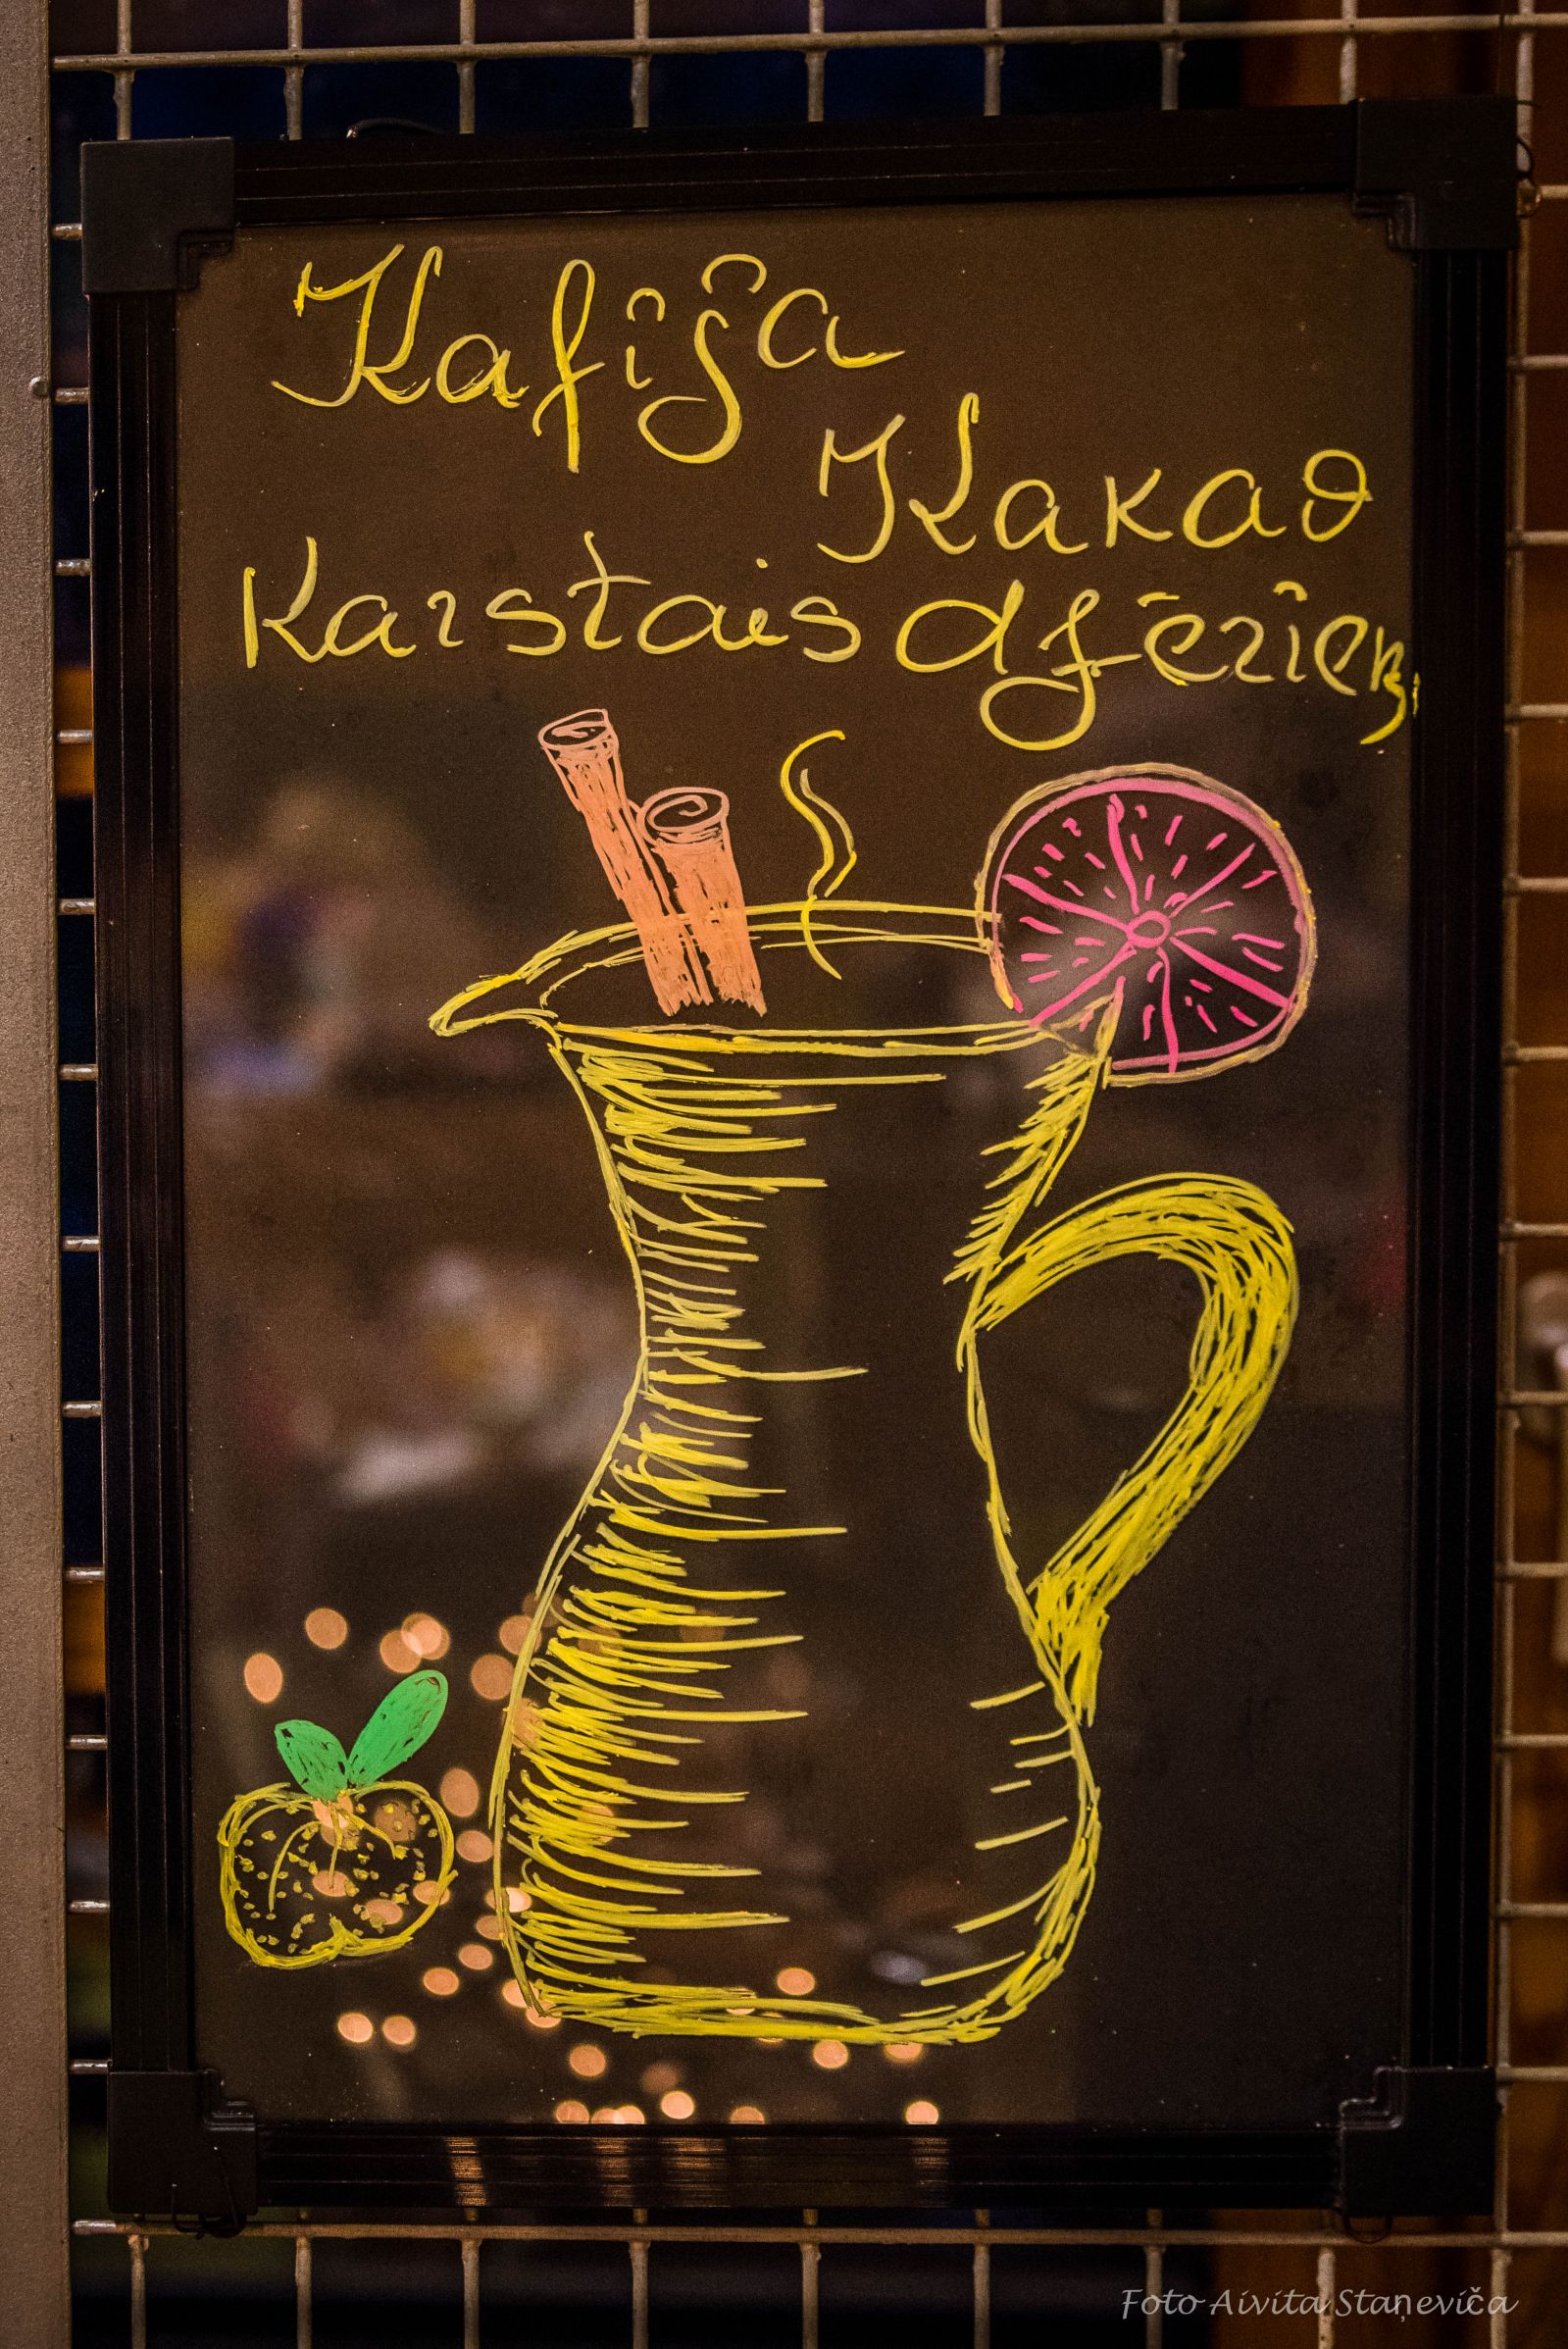 Kafija
Kakao
Karstais dzēriens
Foto Aivita Staņeviča